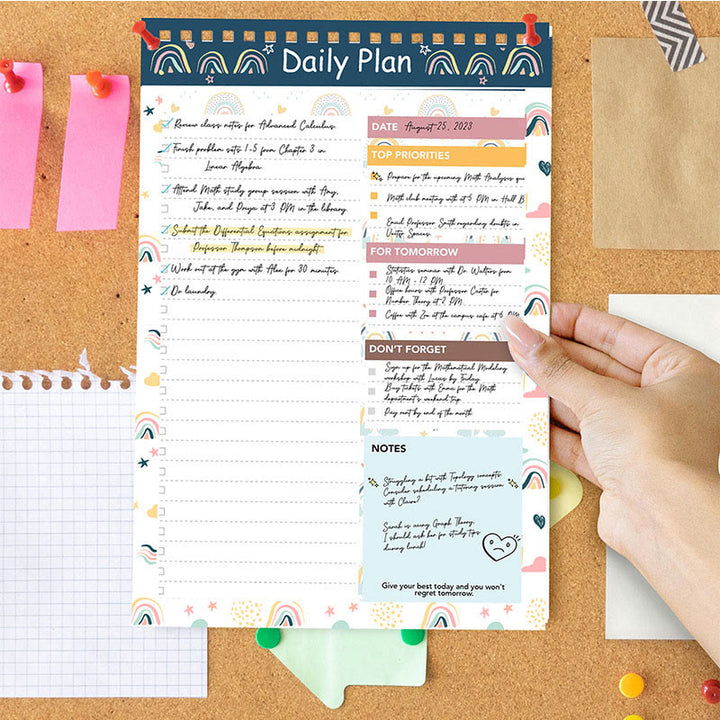 Daily Plan
Review class notes for Advanced Calculus.
Finish problem sets 1-5 from Chapter 3 in
Linear Algebra.
Attend Math study group session with Amy,
Jake, and Priya at 3 PM in the library.
Submit the Differential Equations assignment for
Professor Thompson before midnight.
Work out at the gym with Alex for 30 minutes.
Do laundry.
DATE August-25, 2023
TOP PRIORITIES
Prepare for the upcoming Math Analysis
Math club meeting with at 5 PM in Hall B
Email Professor Smith regarding doubts in
Spaces.
FOR TOMORROW
Statistics seminar with Dr. Walters from
10 AM - 12 PM.
Office hours with Professor Center for
Number Theory at 2 PM.
Coffee with Zoe at the campus cafe at 6 PM.
DON'T FORGET
Sign up for the Mathematical Modeling
workshop with Lucas by Friday.
Buy tickets with Emma for the Math
department's weekend trip.
Pay rent by end of the month.
NOTES
Struggling a bit with Topology concepts.
Consider scheduling a tutoring session
with Claire?
Sarah is acing Graph Theory,
I should ask her for study tips
during lunch!
Give your best today and you won't
regret tomorrow.